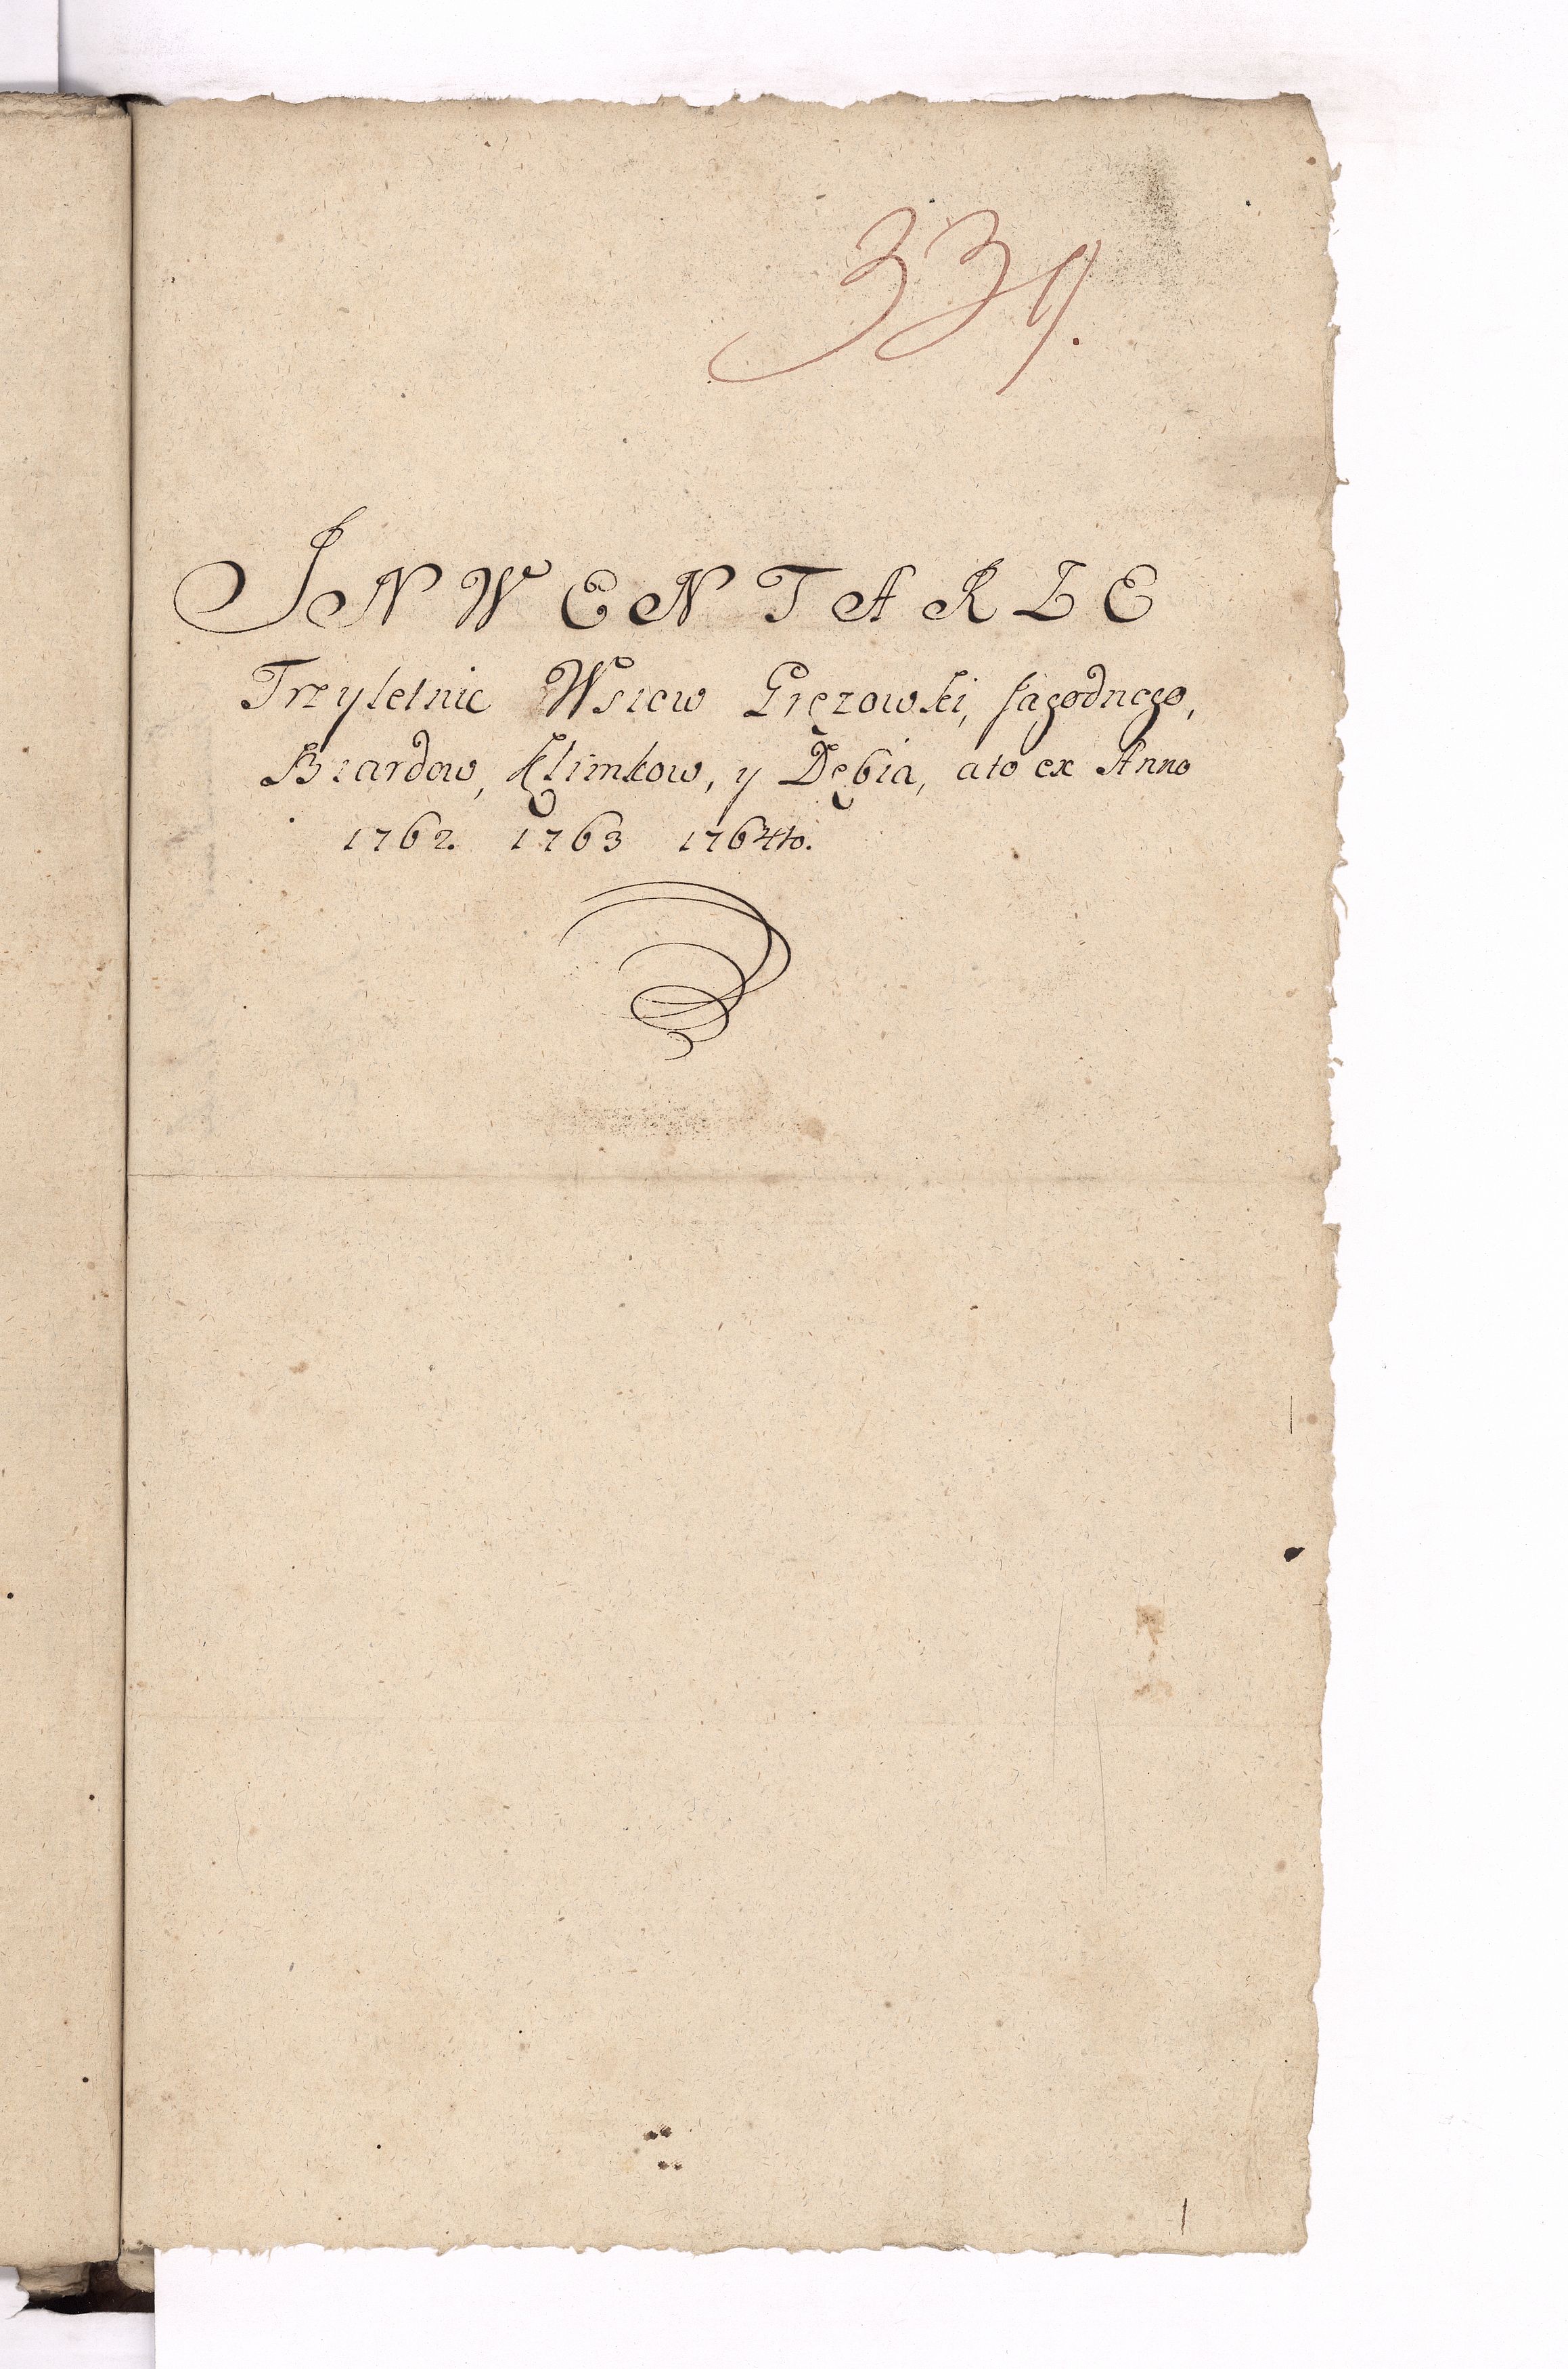 339.
INWENTARZE
Trzyletnie Wsiow Gręzowki, Jagodnego,
Biardow, Klimkow, y Dębia, a to ex Anno
1762. 1763 1764to.
1